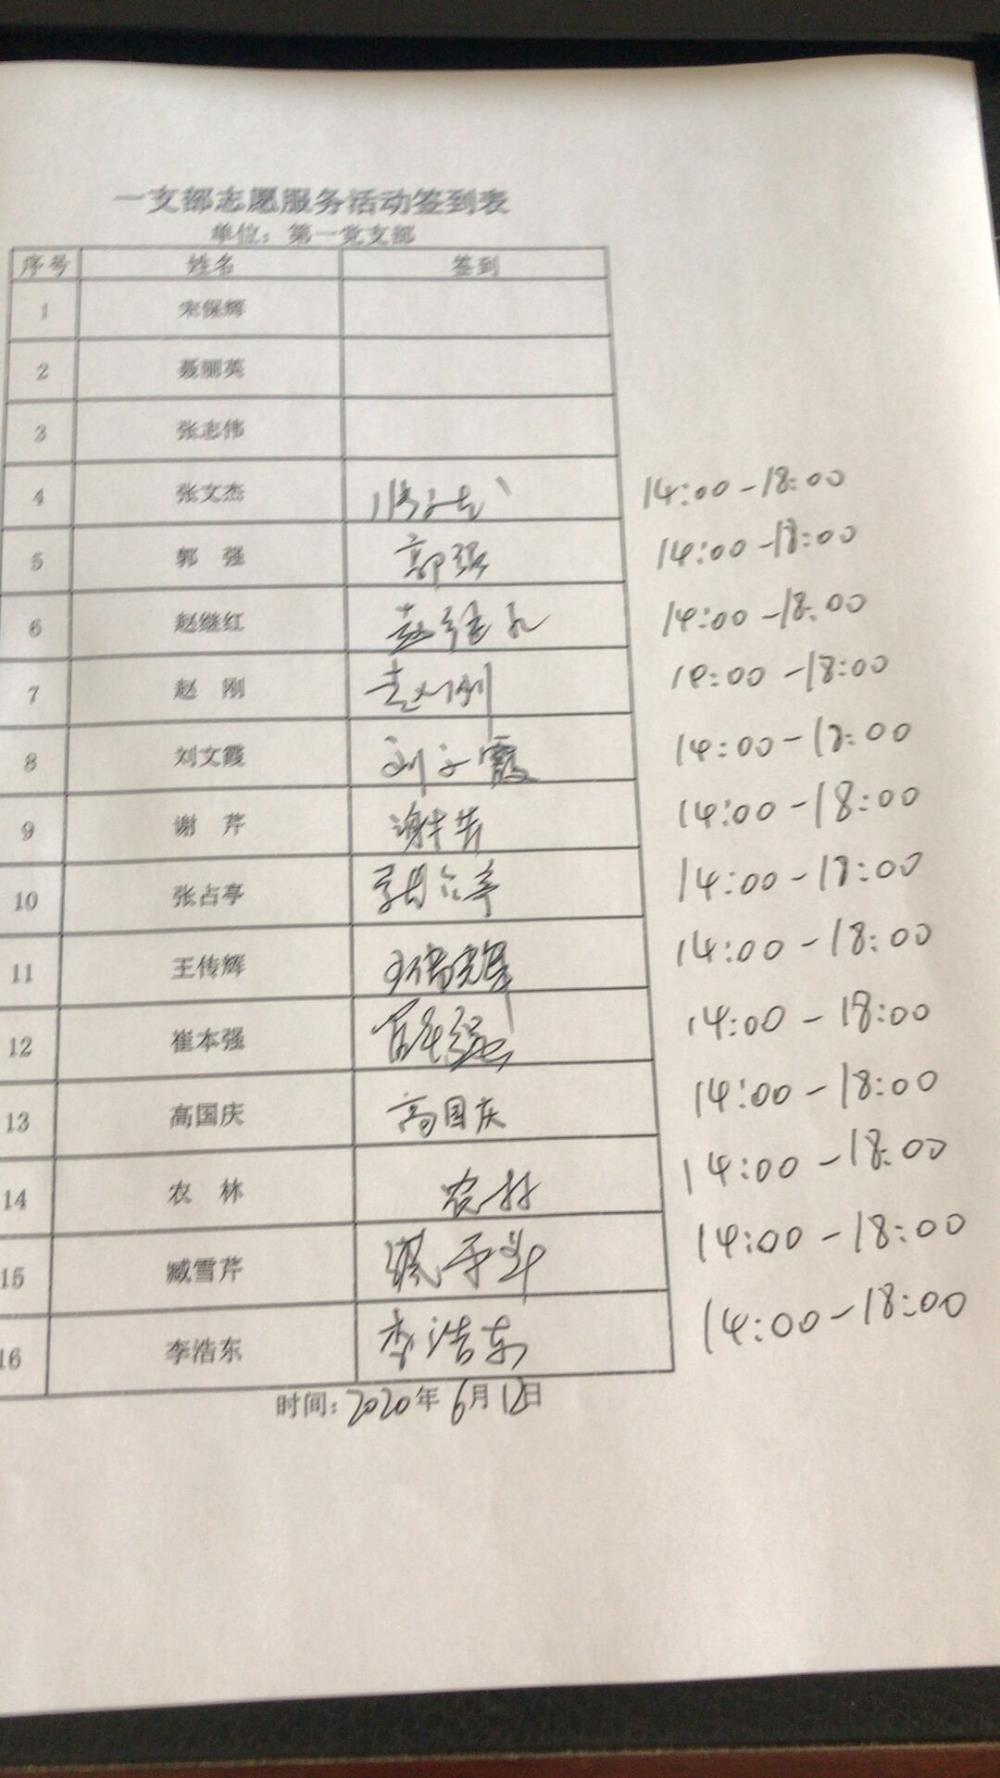 一支部志愿服务活动签到表
单位：第一党支部
序号 姓名 签到
1 宋保辉
2 聂丽英
3 张志伟
4 张文杰 张文杰 14:00-18:00
5 郭 强 郭强 14:00-18:00
6 赵继红 赵继红 14:00-18:00
7 赵 刚 赵刚 14:00-18:00
8 刘文霞 刘文霞 14:00-18:00
9 谢 芹 谢芹 14:00-18:00
10 张占亭 張占亭 14:00-18:00
11 王传辉 王传辉 14:00-18:00
12 崔本强 崔本强 14:00-18:00
13 高国庆 高国庆 14:00-18:00
14 农 林 农林 14:00-18:00
15 臧雪芹 14:00-18:00
16 李浩东 李浩东 14:00-18:00
时间：2020年6月12日